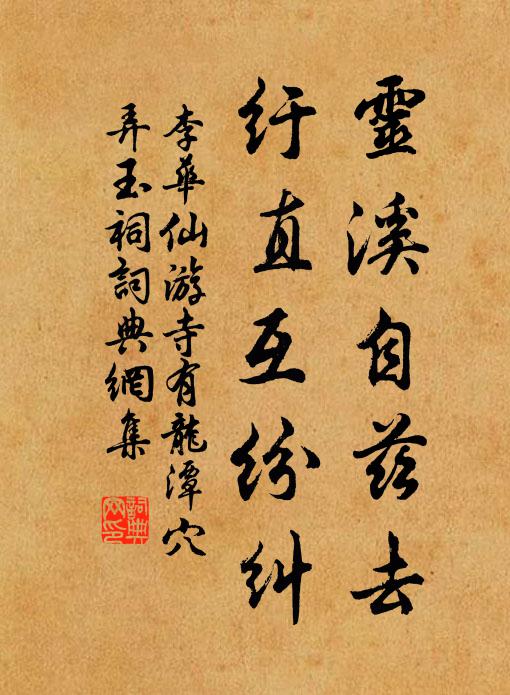 靈溪自茲去
紆直互紛糾
李華仙游寺有龍潭穴
弄玉祠詞典網集
詞典
网印